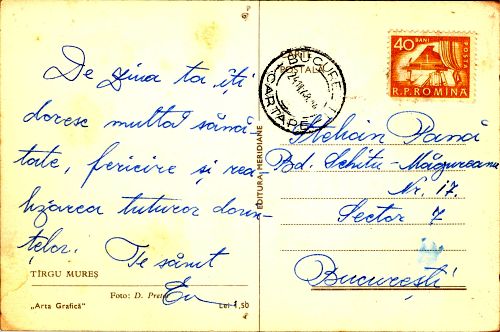 De ziua ta, îți
doresc multă sănă-
tate, fericire și rea-
lizarea tuturor dorin-
țelor. Te sărut
Eu
TÎRGU MUREȘ
Foto: D. Pretor
„Arta Grafică”
Lei 1,50
EDITURA MERIDIANE
POȘTALĂ
BUCUREȘTI
CARTARE
40 BANI
POSTA
R.P.ROMINA
Stelian Pană
Bd. Schitu-Măgureanu
Nr. 17.
Sector 7
București